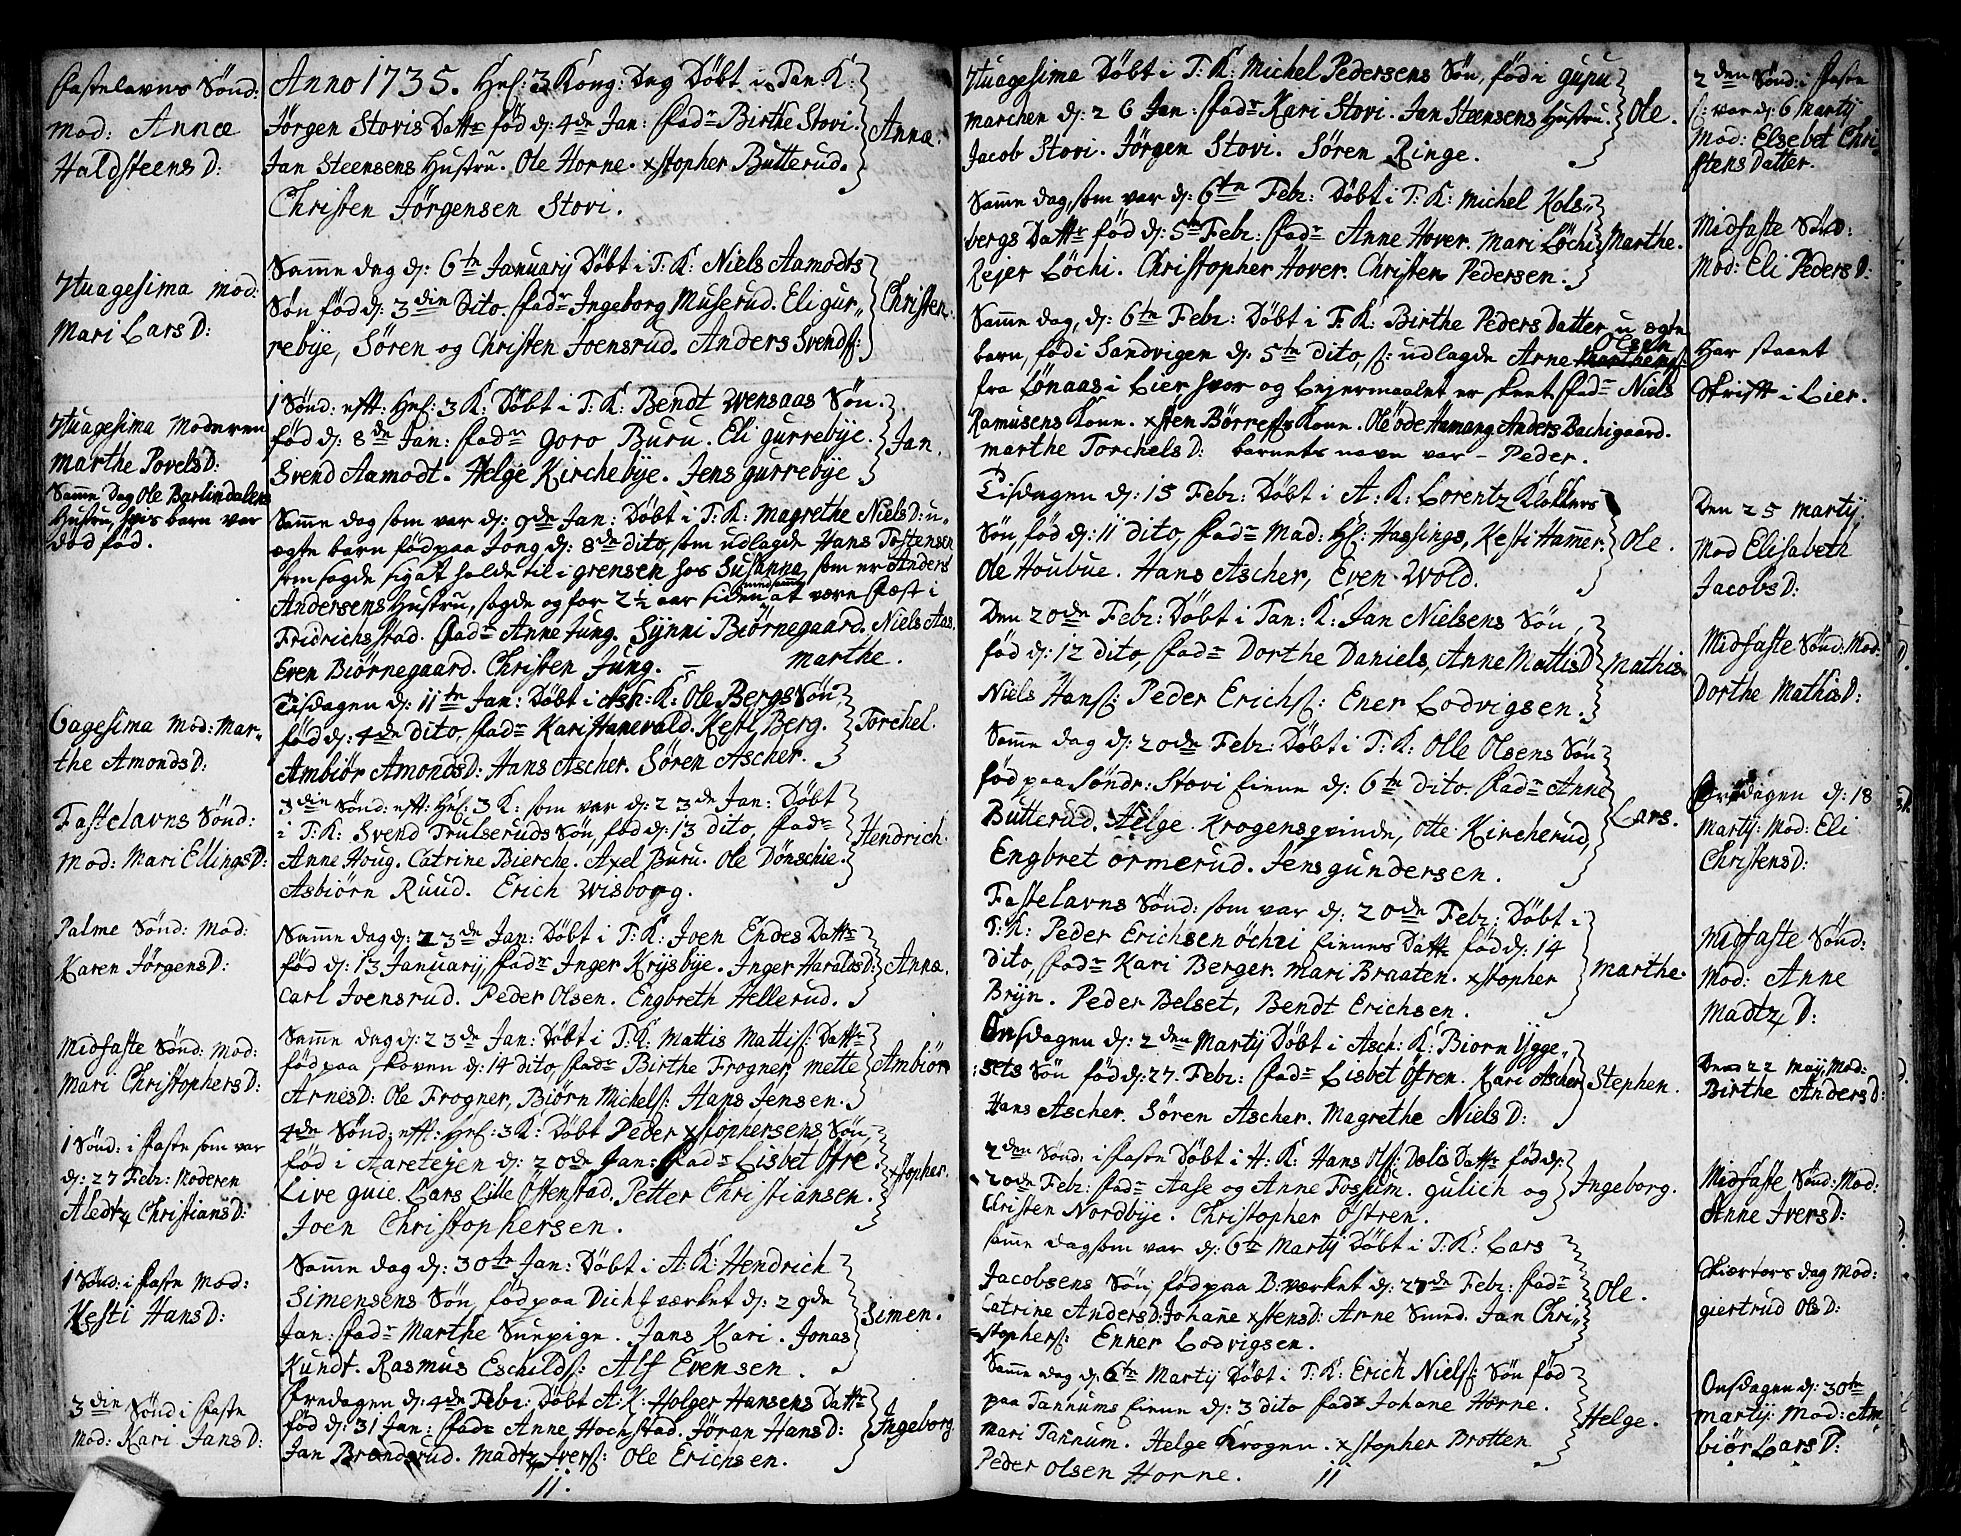 Fastelavns Sönd:
Mod: Annæ
Haldsteens D:
7tuagesima mod:
Mari Lars D:
7tuagesima Moderen
Marthe Povels D:
Samme Dag Ole Barlindalens
Hustru, hvis barn var
död föd.
6agesima Mod: Mar-
the Amonds D:
Fastelavns Sönd:
Mod: Mari Ellings D:
Palme Sönd: Mod:
Karen Jörgens D:
Midfaste Sönd: Mod:
Mari Christophers D:
1 Sönd: i Faste som var
d: 27 Febr: Moderen
Aledtz Christians D:
1 Sönd: i Faste Mod:
Kesti Hans D:
3die Sönd i Faste
Mod: Kari Jans D:
Anno 1735. Hel: 3 Kong: Dag Döbt i Tan: K:
Jörgen Stovis Dattr föd d: 4de Jan: Fadr Birthe Stovi.
Jan Steensens Hustru. Ole Horne. xstopher Butterud.
Christen Jörgensen Stovi.
Annæ.
Samme dag d: 6te January Döbt i T: K: Niels Aamodts
Sön föd d: 3die Dito. Fadr Ingeborg Muserud. Eli gur-
rebije, Sören og Christen Joensrud. Anders Svends:
Christen.
1 Sönd: efft: Hel: 3 K: Döbt i T: K: Bendt Wensaas Sön
föd d: 8de Jan: Fadr Goro Buru. Eli gurrebije.
Svend Aamodt. Helge Kirchebije. Jens gurrebije
Jan.
Samme dag som var d: 9de Jan: Döbt i T: K: Magrethe Niels D: u-
ægte barn föd paa Jong d: 8de dito, som udlagde Hans Tostensen
som sagde sig at holde til i grensen hos Susanna, som er Anders
Andersens Hustru, sagde og for 2½ aar siden at være Fæst i
Fridrichsstad. Fadr Anne Jung. Synni Biörnegaard. Niels Aas.
Even Biörnegaard. Christen Jung. – Marthe.
Tisdagen d: 11te Jan: Döbt i Ask: K: Ole Bergs Sön,
föd d: 4de dito, Fadr Kari Hanevald. Kestl Berg.
Ambiör Amonds D: Hans Ascher. Sören Ascher.
Torchel.
3die Sönd: efft: Hel: 3 K: som var d: 23de Jan: Döbt
i T: K: Svend Trulseruds Sön, föd d: 13 dito, Fadr
Anne Houg. Catrine Bierche. Axel Buru. Ole Dönschie.
Asbiörn Ruud. Erich Wisborg.
Hendrich.
Samme dag d: 23de Jan: Döbt i T: K: Joen Endes Dattr
föd d: 13 January, Fadr Inger Krysbye. Inger Haralds D:
Carl Joensrud. Peder Olsen. Engbreth Hellerud.
Annæ.
Samme dag d: 23de Jan: Döbt i T: K: Mattis Mattis: Dattr
föd paa skoven d: 14 dito, Fadr Birthe Frogner, mette
Arnes D: Ole Frogner, Biörn Michels: Hans Jensen.
Ambiör
4de Sönd: efft: Hel: 3 K: Döbt Peder xstophersens Sön,
föd i Aaretejen d: 20de Jan: Fadr Lisbet Öfre.
Live guie. Lars Lille Ostenstad. Petter Christiansen.
Joen Christophersen.
xstopher.
Samme dag d: 30te Jan: Döbt i A: K: Hendrich
Simensens Sön, föd paa Dich værket d: 29de
Jan: Fadr Marthe Suepige. Jans Kari. Jonas
Kundt. Rasmus Eschilds: Alf Evensen.
Simen.
Fredagen d: 4de Febr: Döbt A: K: Holger Hansens Dattr
föd d: 31 Jan: Fadr Anne Hochstad. Jöran Hans D:
Jan Brandsrud. Madtz Ivers: Ole Erichsen.
Ingeborg
11.
7tuagesima Döbt i T: K: Michel Pedersens Sön, föd i gupu
marchen d: 26 Jan: Fadr Kari Stovi. Jan Steensens Hustru.
Jacob Stovi. Jörgen Stovi. Sören Ringe.
Ole.
Samme dag, som var d: 6te Febr: Döbt i T: K: Michel Kols-
bergs Dattr föd d: 5te Febr: Fadr Anne Hover. Mari Löchi
Rejer Löchi. Christopher Hover. Christen Pedersen.
Marthe.
Samme dag, d: 6te Febr: Döbt i T: K: Birthe Peders Datter u ægte
barn, föd i Sandvigen d: 5te dito, s: udlagde Arne Olsen
fra Lönaas i Lier hvor og Lejermaalet er skeet. Fadr Niels
Ramusens Kone. xsten Börres: Kone. Ole öde Humang Anders Bachigaard.
marthe Torchels D: barnets navn var – Peder.
Tisdagen d: 15 Febr: Döbt i A: K: Lorentz Klokkers
Sön, föd d: 11 dito, Fadr Mad: Hl: Hassings, Kesti Hamer.
Ole Houbue. Hans Ascher, Even Wold.
Ole.
Den 20de Febr: Döbt i Tan: K: Jan Nielsens Sön,
föd d: 12 dito, Fadr Dorthe Daniels, Anne Mattis D
Niels Hans: Peder Erichs: Ener Lodvigsen.
Mathis
Samme dag d: 20de Febr: Döbt i T: K: Olle Olsens Sön
föd paa Söndr: Stovi Eiene d: 6te dito. Fadr Anne
Butterud. Helge Krogensqvinde, Otte Kircherud,
Engbret ormerud. Jens gundersen.
Lars.
Fastelavns Sönd: som var d: 20de Febr: Döbt i
T: K: Peder Erichsen öchri Eienes Dattr föd d: 14
dito, Fadr Kari Berger. Mari Braaten. xstopher
Bryn. Peder Belset, Bendt Erichsen.
Marthe.
Onsdagen d: 2den Marty Döbt i Asch: K: Biorn Ygge-
sets Sön föd d: 27. Febr: Fadr Lisbet Öfren. Kari Ascher
Hans Ascher. Sören Ascher. Magrethe Niels D:
Stephen.
2den Sönd: i Faste Döbt i H: K: Hans Ols: Dælis Dattr föd d:
20de Febr: Fadr Aase og Anne Fossum. gulich og
Christen Nordbye. Christopher Östren.
Ingeborg.
samme dag som var d: 6te Marty Döbt i T: K: Lars
Jacobsens Sön föd paa B: værket d: 27de Febr: Fadr
Catrine Anders D: Johane xstens D: Arne Smed. Jan Chri-
stophers: Enner Lodvigsen.
Ole.
Samme dag d: 6te Marty Döbt i T: K: Erich Niels: Sön föd
paa Tannums Eiene d: 3 dito Fadr Johane Horne.
Mari Tannum. Helge Krogen. xstopher Brotten
Peder Olsen Horne.
Helge.
11
2den Sönd: i Faste
s: var d: 6 Marty
Mod: Elsebet Chri-
stens Datter.
Midfaste Sönd:
Mod: Eli Peders D:
Har staaet
Skrifft i Lier.
Den 25 Marty.
Mod Elisabeth
Jacobs D:
Midfaste Sönd: Mod:
Dorthe Mathis D:
Fredagen d: 18
Marty: Mod: Eli
Christens D:
Midfaste Sönd:
Mod: Anne
Madtz D:
Den 22 Maij, Mod:
Birthe Anders D:
Midfaste Sönd: Mod:
Anne Ivers D:
Skiærtorsdag Mod:
giertrud Ols D:
Onsdagen d: 30te
Marty: Mod: Am-
biör Lars D: